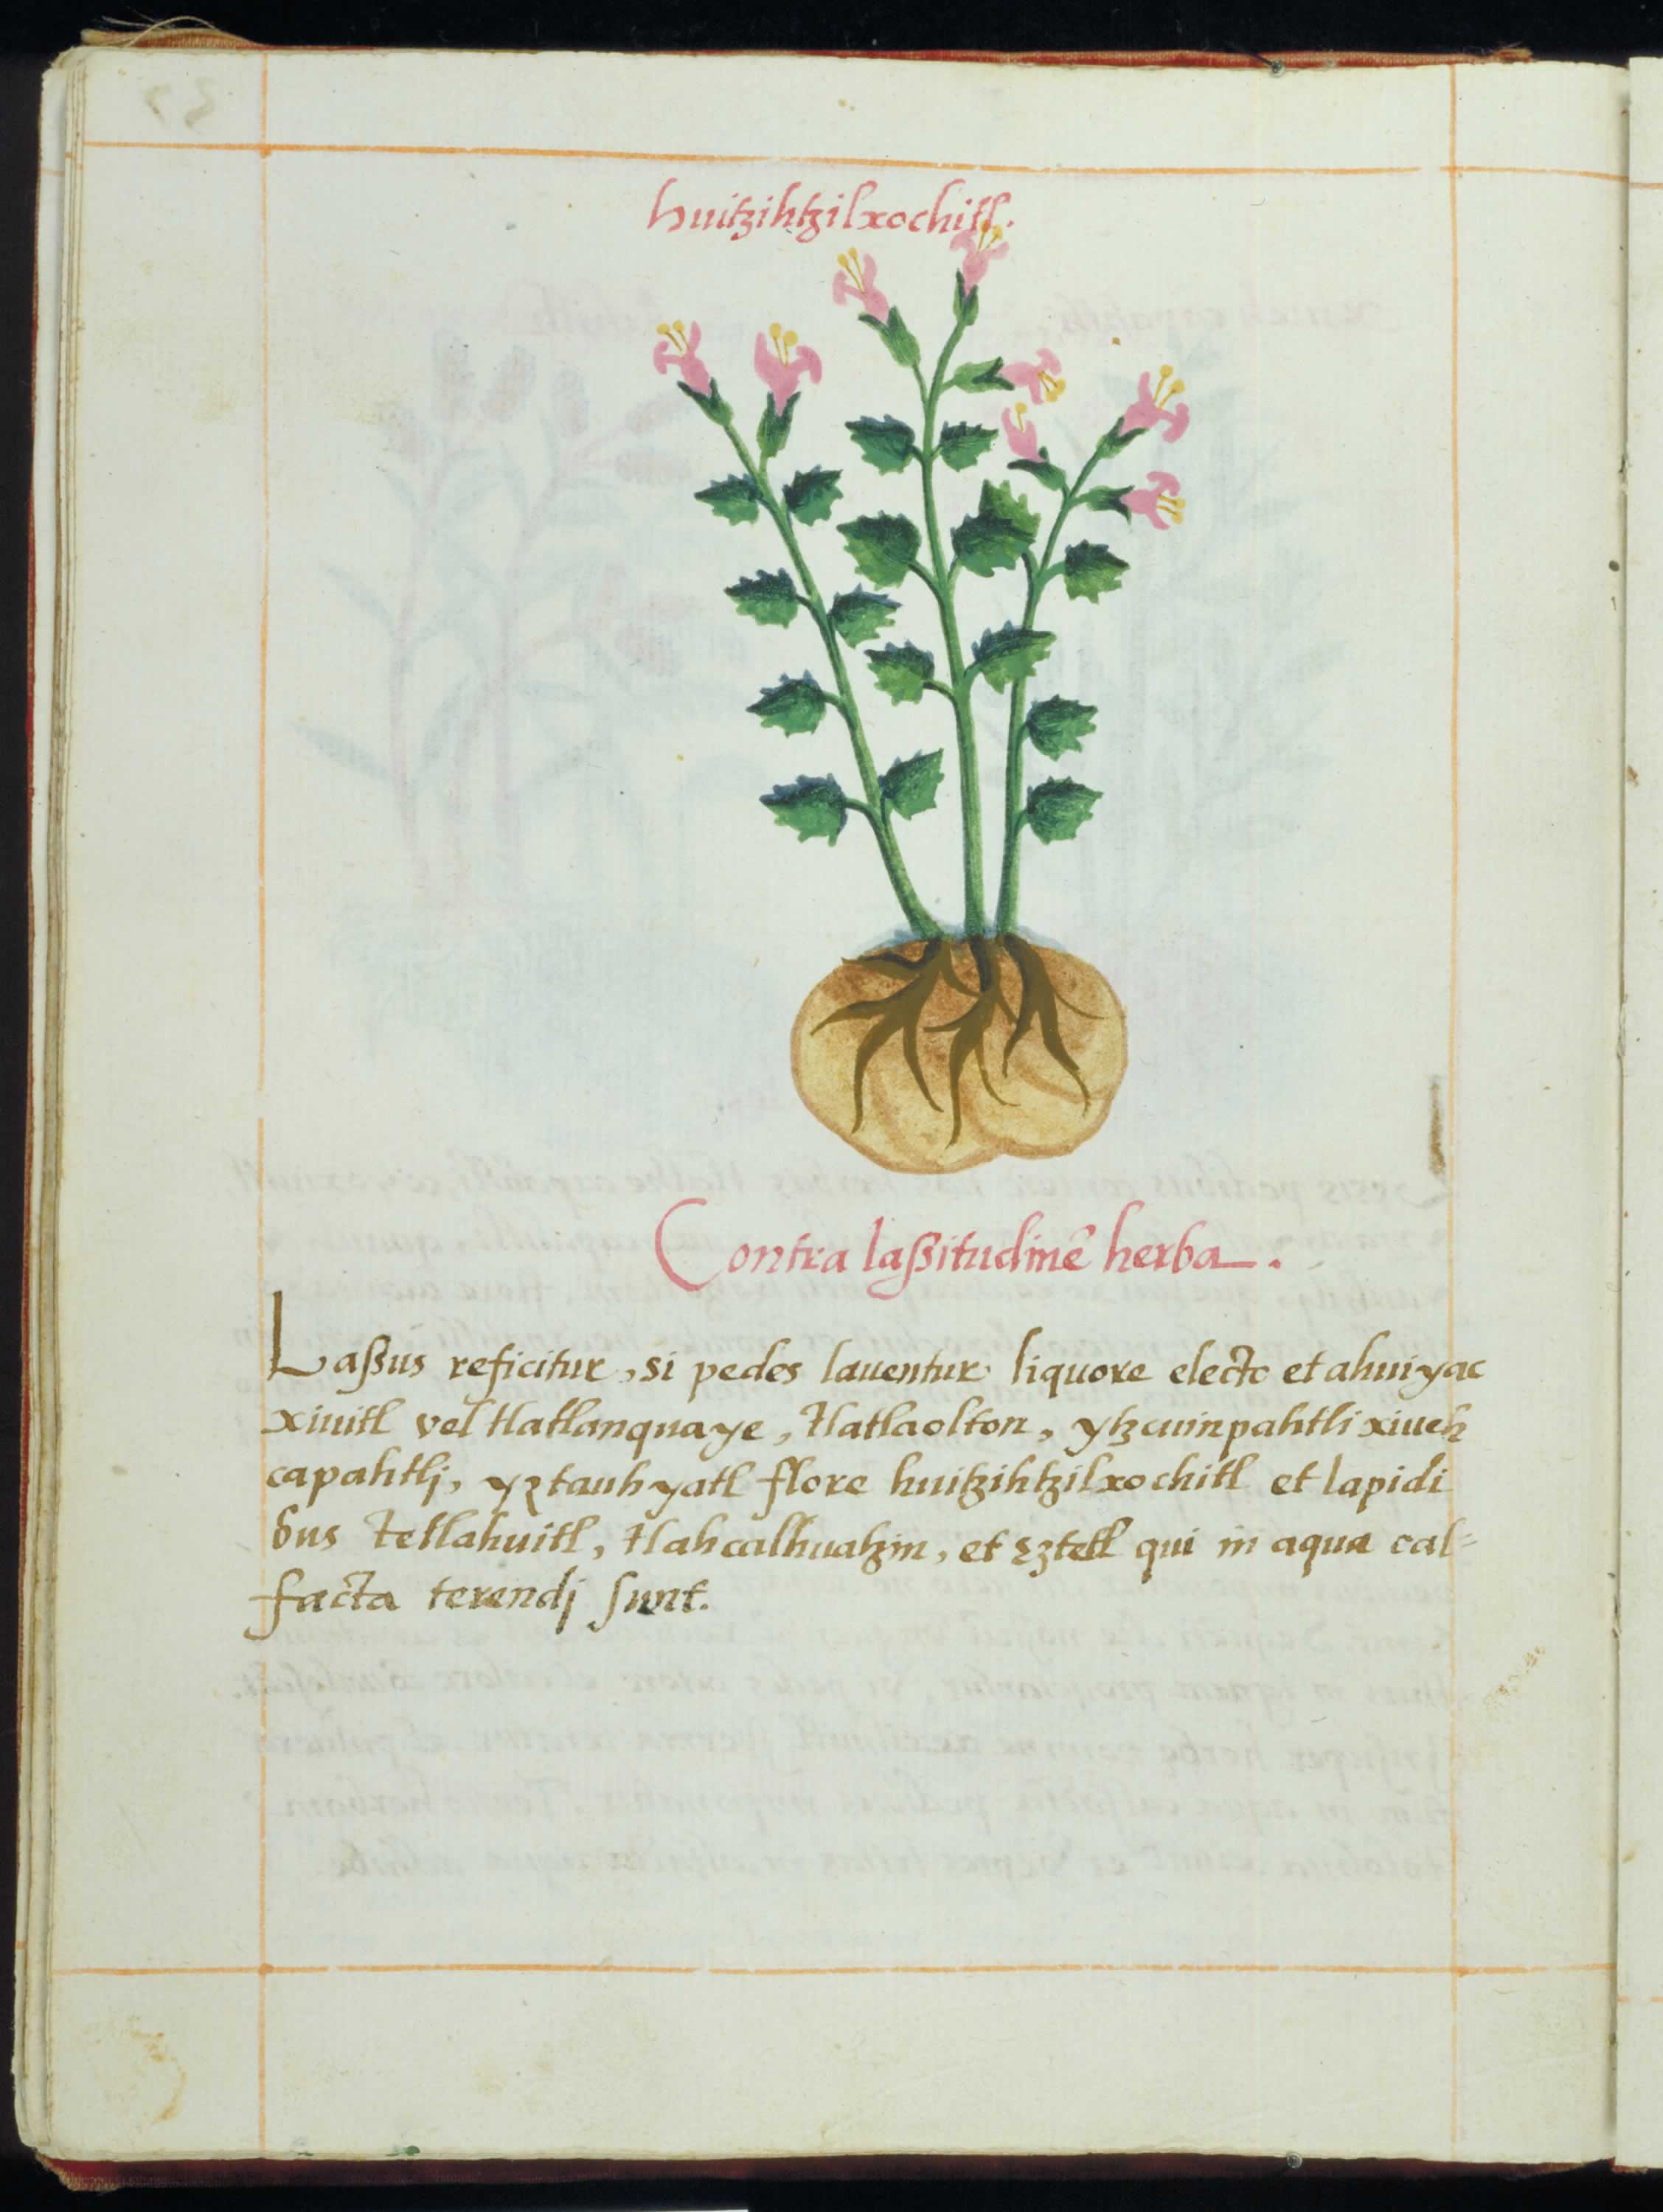 huitzihtzilxochitl.
Contra laßitudinẽ herba.
Laßus reficitur, si pedes lauentur liquore electo et ahuiyac
xiuitl vel tlatlanquaye, tlatlaolton, ytzcuinpahtli xiueh
capahtlj, yztauhyatl flore huitzihtzilxochitl et lapidi
bus tetlahuitl, tlahcalhuatzin, et eztetl qui in aqua cal=
facta terendj sunt.